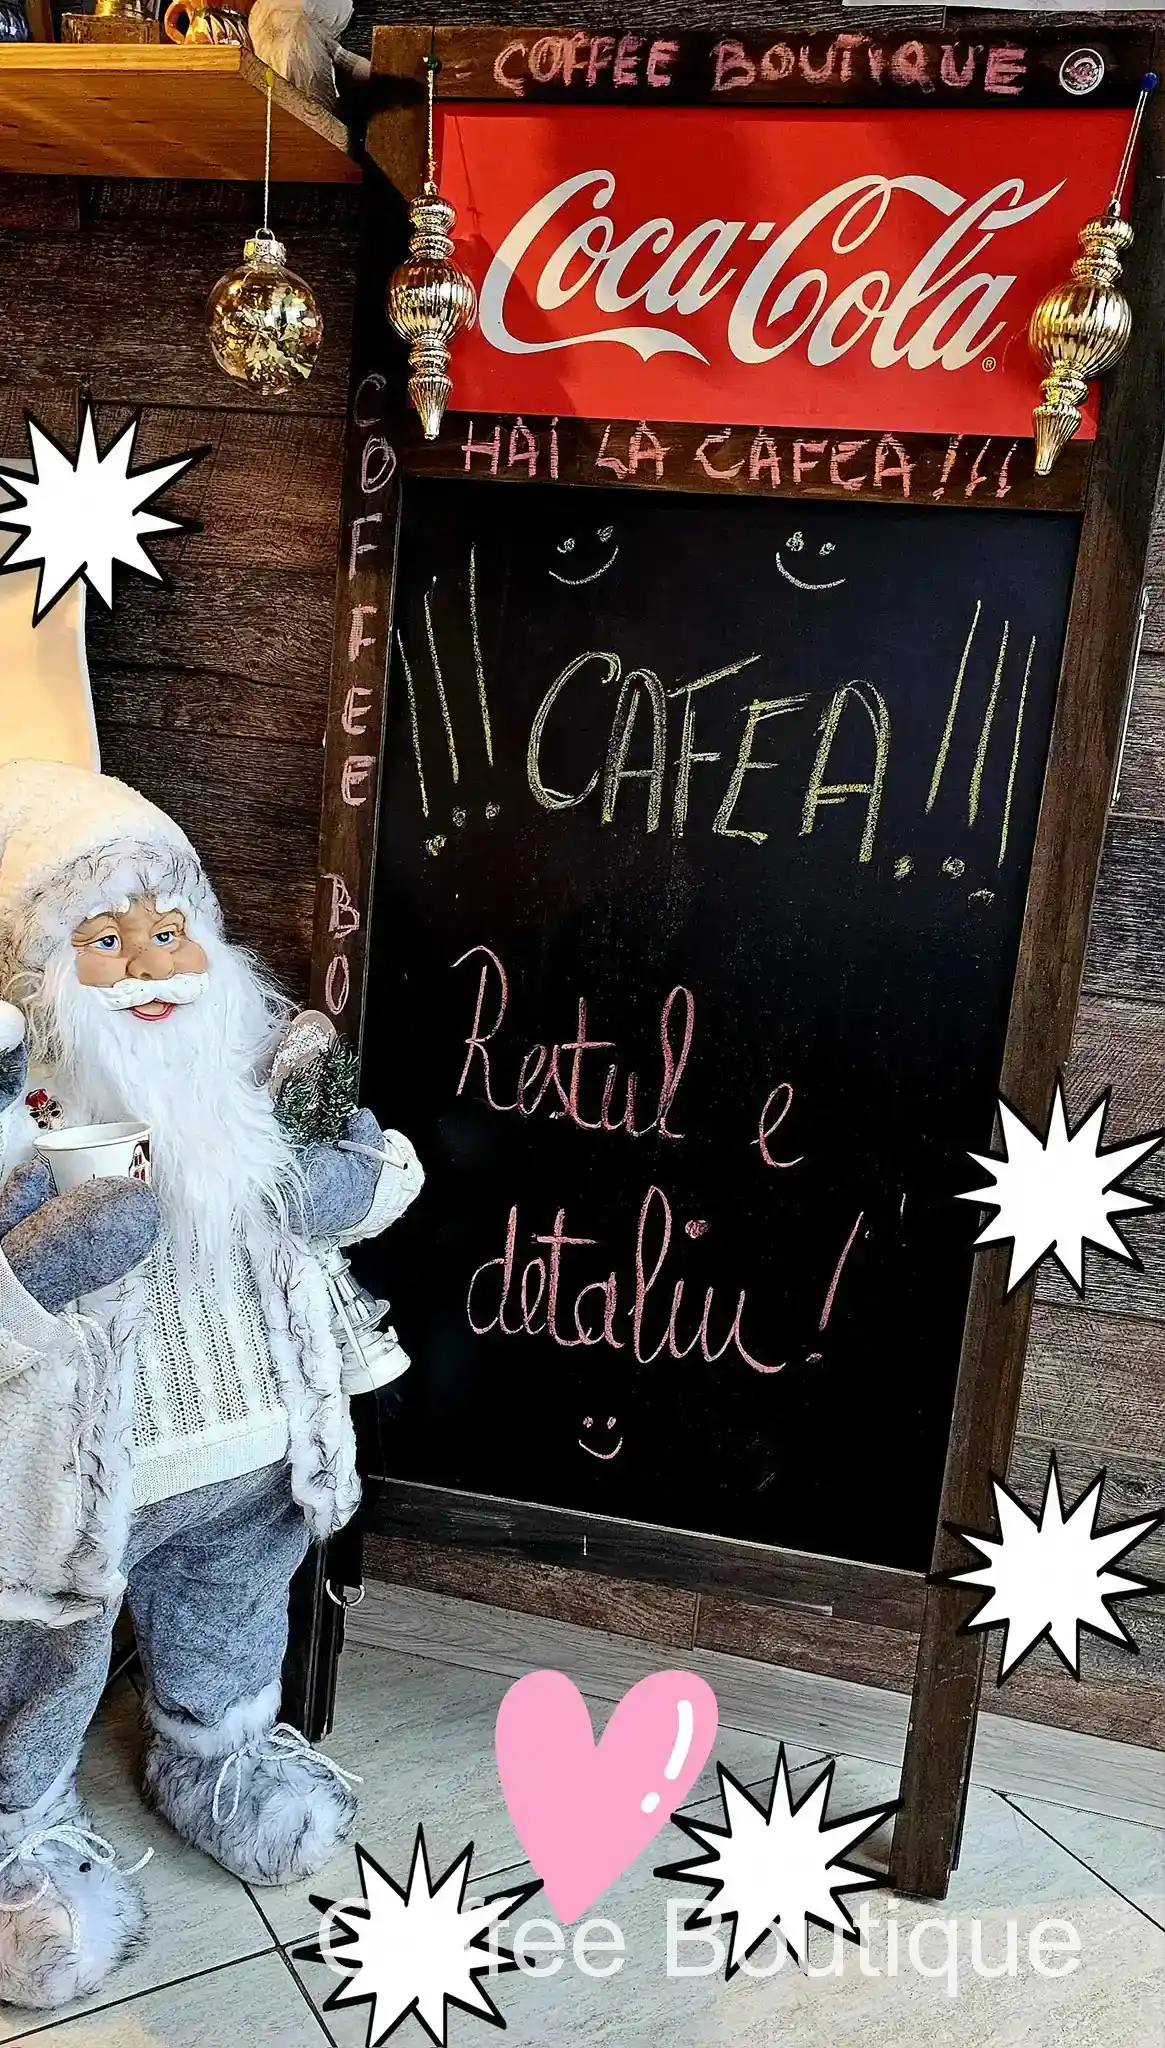 COFFEE BOUTIQUE
Coca-Cola
®
HAI LA CAFEA!!!
COFFEE BO
!!! CAFEA !!!
Restul e
detaliu!
Coffee Boutique